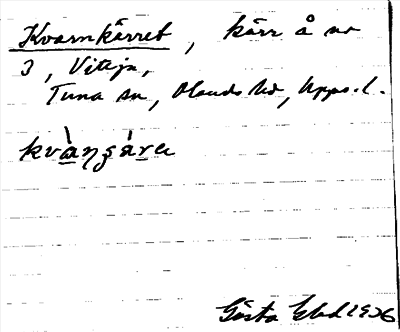 Kvarnkärret, kärr å nr
3, Viteja,
Tuna sn, Olands hd, Upps. l.
kvàŋçàrə
Gösta Ekd 1936